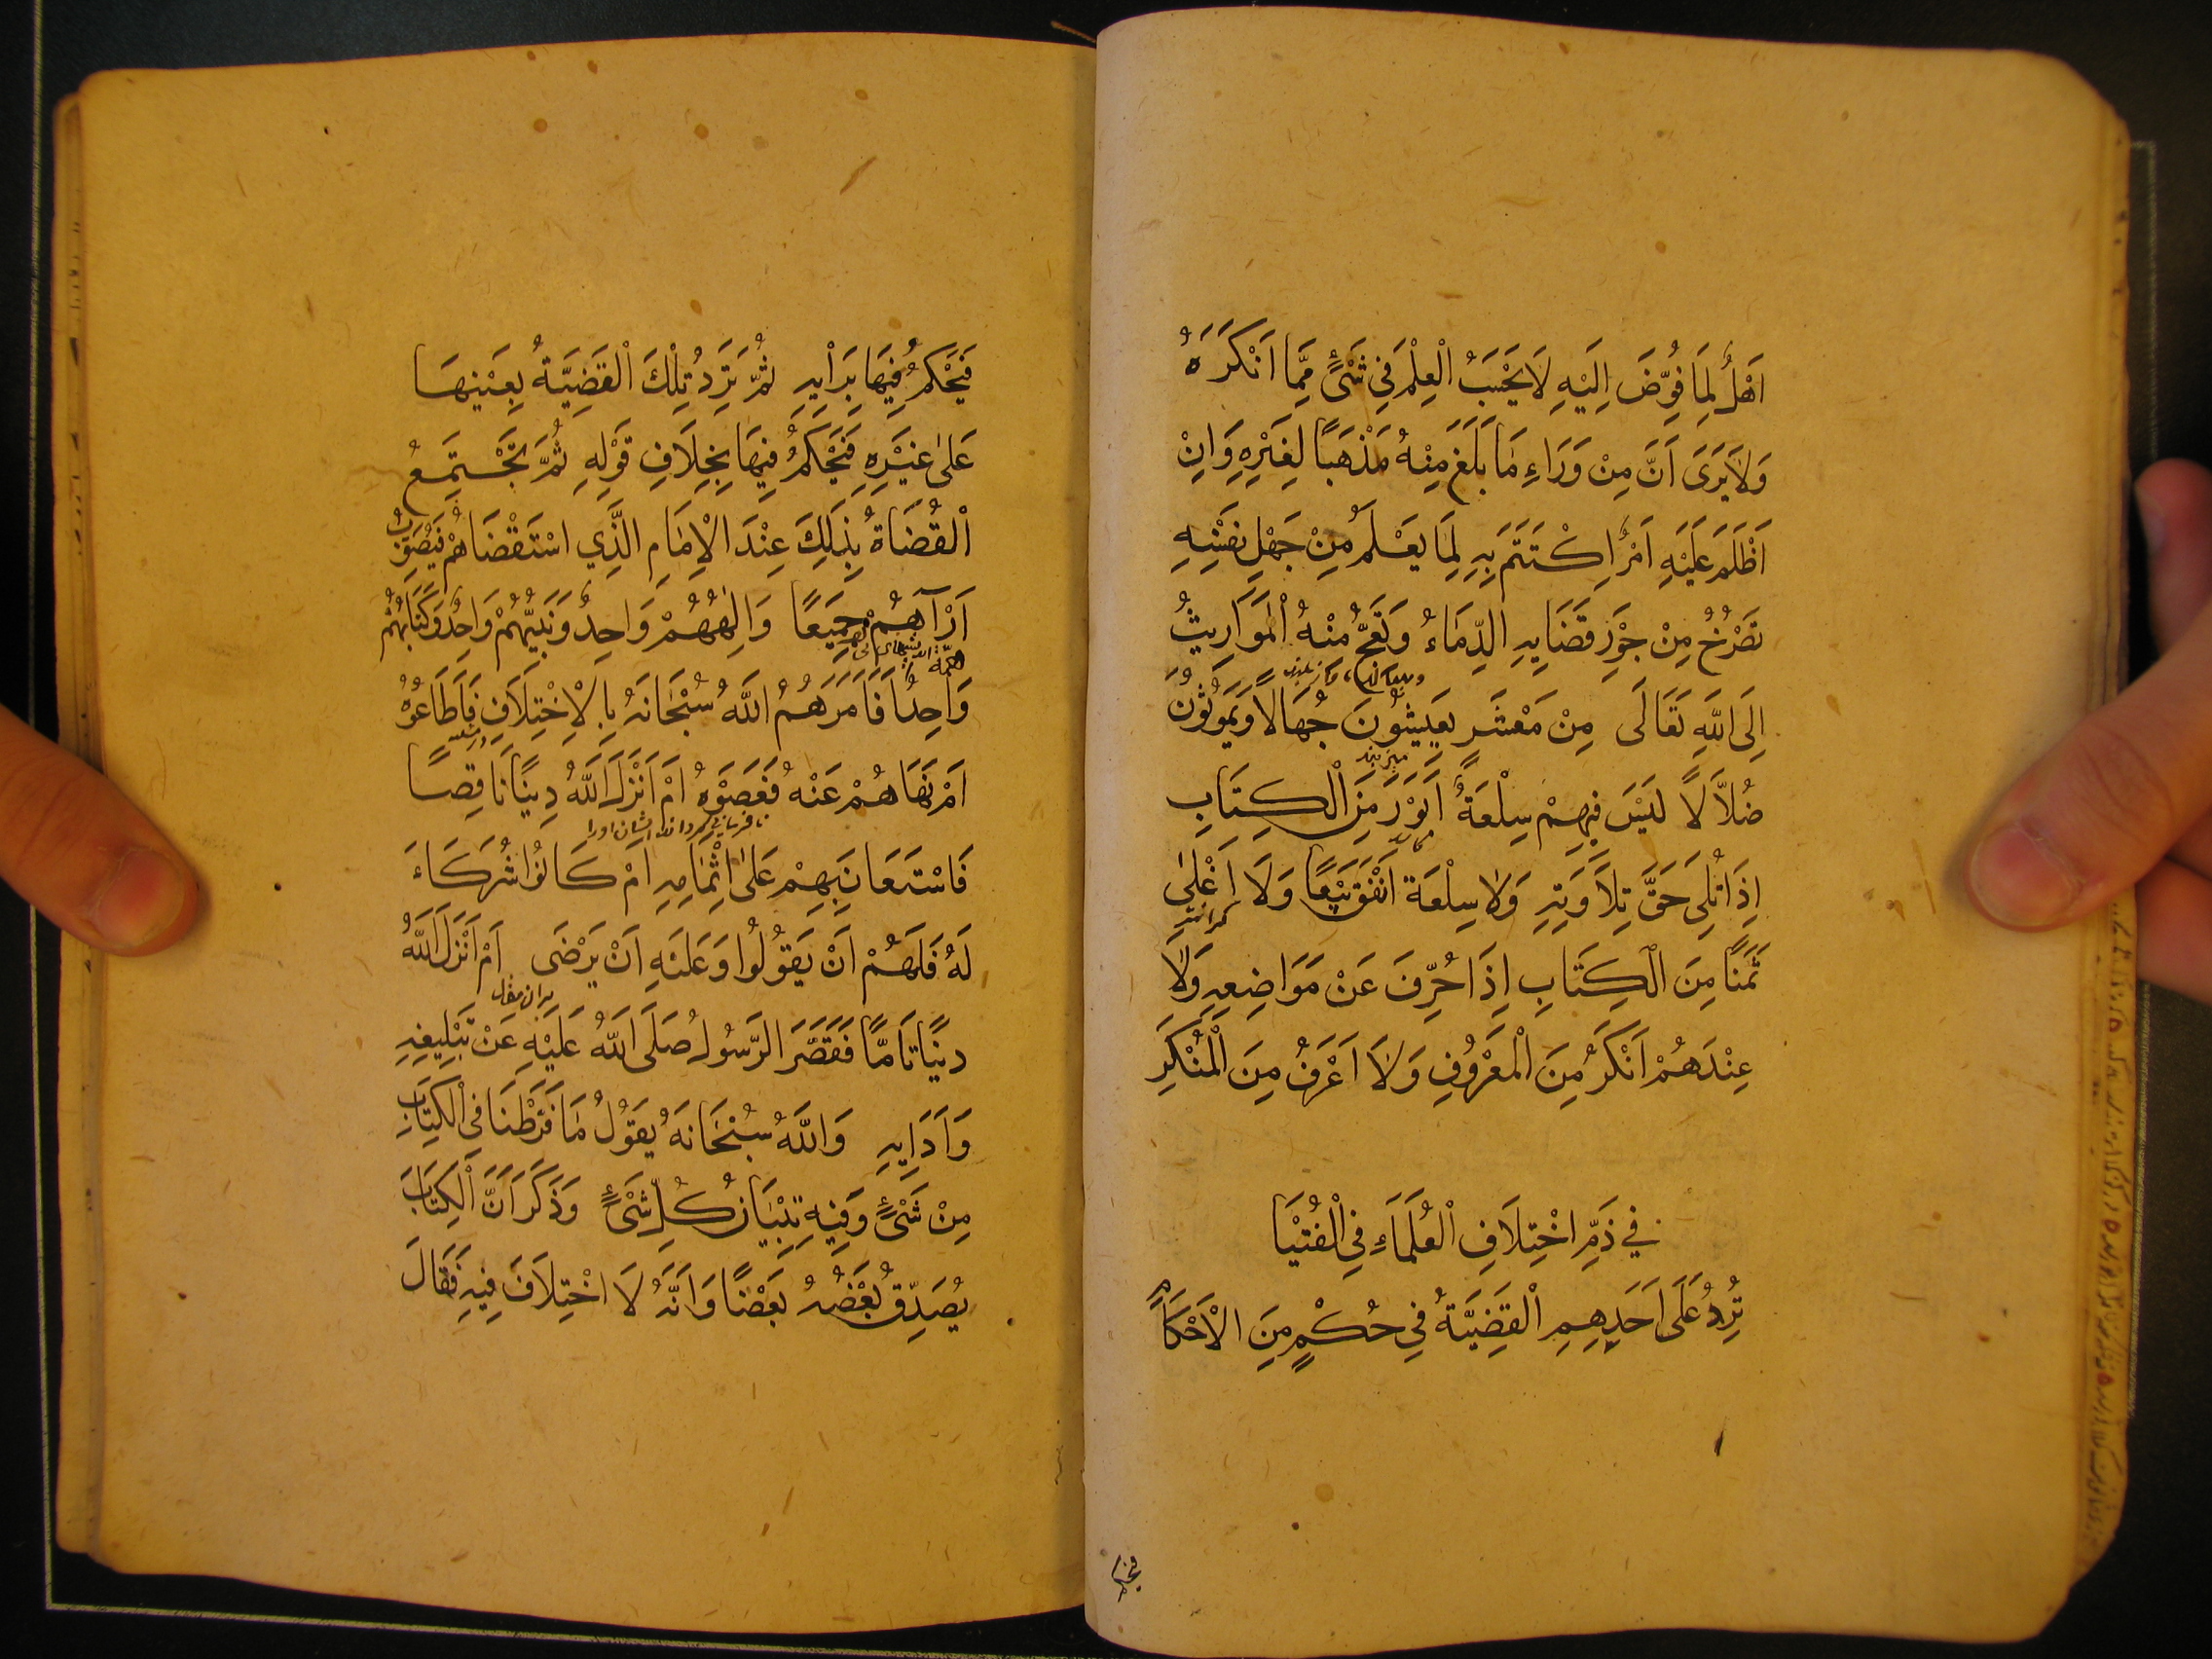 اَهْلٌ لِمَا فُوِّضَ اِلَيْهِ لَا يَحْسَبُ الْعِلْمَ فِي شَيْءٍ مِمَّا اَنْكَرَهُ
وَلَا يَرَى اَنَّ مِنْ وَرَاءِ مَا بَلَغَ مِنْهُ مَذْهَبًا لِغَيْرِهِ وَاِنْ
اَظْلَمَ عَلَيْهِ اَمْرٌ اِكْتَتَمَ بِهِ لِمَا يَعْلَمُ مِنْ جَهْلِ نَفْسِهِ
تَصْرُخُ مِنْ جَوْرِ قَضَايِهِ الدِّمَاءُ وَتَعَجُّ مِنْهُ الْمَوَارِيثُ
اِلَى اللَّهِ تَعَالَى مِنْ مَعْشَرٍ يَعِيشُونَ جُهَّالًا وَيَمُوتُونَ
ضُلَّالًا لَيْسَ فِيهِمْ سِلْعَةٌ اَبْوَرَ مِنَ الْكِتَابِ
اِذَا تُلِيَ حَقَّ تِلَاوَتِهِ وَلَا سِلْعَة اَنْفَقَ بَيْعًا وَلَا اَغْلَى
ثَمَنًا مِنَ الْكِتَابِ اِذَا حُرِّفَ عَنْ مَوَاضِعِهِ وَلَا
عِنْدَهُمْ اَنْكَرُ مِنَ الْمَعْرُوفِ وَلَا اَعْرَفُ مِنَ الْمُنْكَرِ
في ذَمِّ اخْتِلَافِ الْعُلَمَاءِ فِي الْفُتْيَا
تُرِدُ عَلَى اَحَدِهِمِ الْقَضِيَّةُ فِي حُكْمٍ مِنَ الْاَحْكَامِ
فيحكم
فَيَحْكُمُ فِيهَا بِرَأْيِهِ ثُمَّ تَرِدُ تِلْكَ الْقَضِيَّةُ بِعَيْنِهَا
عَلَى غَيْرِهِ فَيَحْكُمُ فِيهَا بِخِلَافِ قَوْلِهِ ثُمَّ تَجْتَمِعُ
الْقُضَاةُ بِذَلِكَ عِنْدَ الْاِمَامِ الَّذِي اسْتَقْضَاهُمْ فَيُصَوِّبُ
اَرْآءَهُمْ جَمِيعًا وَاِلٰهُهُمْ وَاحِدٌ وَنَبِيُّهُمْ وَاحِدٌ وَكِتَابُهُمْ
وَاحِدٌ اَفَاَمَرَهُمُ اللَّهُ سُبْحَانَهُ بِالْاِخْتِلَافِ فَاَطَاعُوهُ
اَمْ نَهَاهُمْ عَنْهُ فَعَصَوْهُ اَمْ اَنْزَلَ اللَّهُ دِينًا نَاقِصًا
نافرمانى كردانند ايشان اورا
فَاسْتَعَانَ بِهِمْ عَلَى اِتْمَامِهِ اَمْ كَانُوا شُرَكَاءَ
لَهُ فَلَهُمْ اَنْ يَقُولُوا وَعَلَيْهِ اَنْ يَرْضَى اَمْ اَنْزَلَ اللَّهُ
دِينًا تَامًّا فَقَصَّرَ الرَّسُولُ صَلَّى اللَّهُ عَلَيْهِ عَنْ تَبْلِيغِهِ
وَاَدَايِهِ وَاللَّهُ سُبْحَانَهُ يَقُولُ مَا فَرَّطْنَا فِي الْكِتَابِ
مِنْ شَيْءٍ وَفِيهِ تِبْيَانُ كُلِّ شَيْءٍ وَذَكَرَ اَنَّ الْكِتَابَ
يُصَدِّقُ بَعْضُهُ بَعْضًا وَاَنَّهُ لَا اخْتِلَافَ فِيهِ فَقَالَ